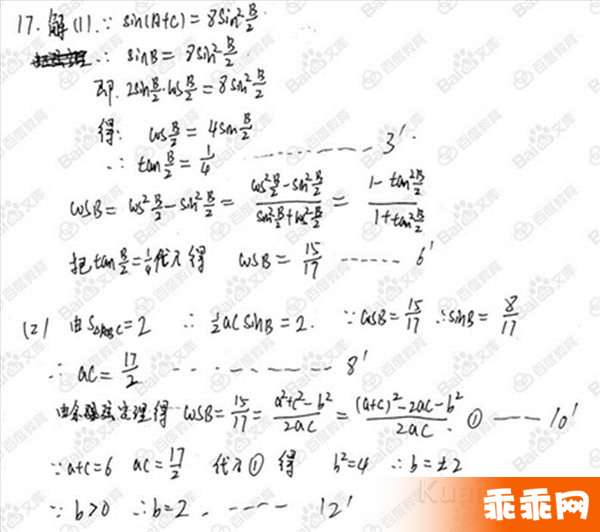 17. 解 (1). ∵ sin(A+C) = 8sin²B/2
∴ sinB = 8sin²B/2
即. 2sinB/2·cosB/2 = 8sin²B/2
得: cosB/2 = 4sinB/2
∴ tanB/2 = 1/4 ---------- 3'
cosB = cos²B/2 - sin²B/2 = (cos²B/2 - sin²B/2)/(sin²B/2 + cos²B/2) = (1 - tan²B/2)/(1 + tan²B/2)
把tanB/2 = 1/4代入得 cosB = 15/17 ------ 6'
(2) 由S△ABC = 2 ∴ 1/2acsinB = 2. ∵ cosB = 15/17 ∴ sinB = 8/17
∴ ac = 17/2 ---------- 8'
由余弦定理得 cosB = 15/17 = (a²+c²-b²)/2ac = ((a+c)²-2ac-b²)/2ac. ① —— 10'
∵ a+c=6 ac = 17/2 代入① 得 b²=4 ∴ b=±2
∵ b>0 ∴ b=2. ---- 12'
乖乖网
Bai百度文库
百度教育